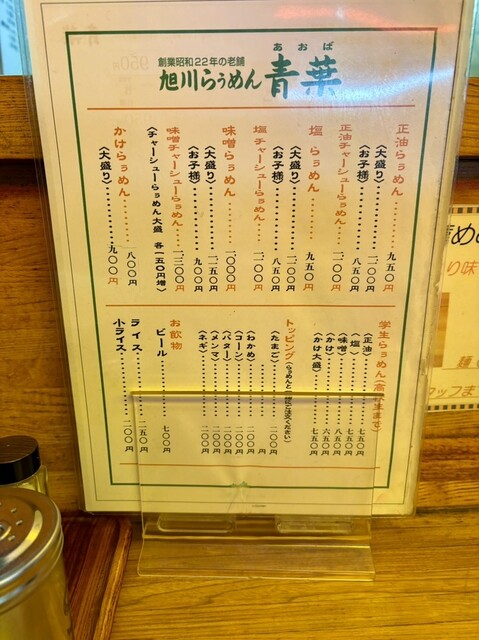 創業昭和22年の老舗
あおば
旭川らぅめん 青葉
正油らぅめん………九五〇円
〈大盛り〉………一一〇〇円
〈お子様〉………八五〇円
正油チャーシューらぅめん…一二〇〇円
塩らぅめん………九五〇円
〈大盛り〉………一一〇〇円
〈お子様〉………八五〇円
塩チャーシューらぅめん…一二〇〇円
味噌らぅめん………一〇〇〇円
〈大盛り〉………一一五〇円
〈お子様〉………九〇〇円
味噌チャーシューらぅめん…一三〇〇円
〈チャーシューらぅめん大盛 各一五〇円増〉
かけらぅめん………八〇〇円
〈大盛り〉………九〇〇円
学生らぅめん(高校生まで)
〈正油〉………七五〇円
〈塩〉………七五〇円
〈味噌〉………八五〇円
〈かけ〉………六五〇円
〈かけ大盛〉………七五〇円
トッピング(らぅめんと一緒にご注文ください)
〈たまご〉………一〇〇円
〈わかめ〉
〈コーン〉………一〇〇円
〈バター〉………一〇〇円
〈メンマ〉………二〇〇円
〈ネギ〉………二〇〇円
お飲物
ビール………七〇〇円
ライス………二五〇円
小ライス………二〇〇円
め
り味
麺
タッフま